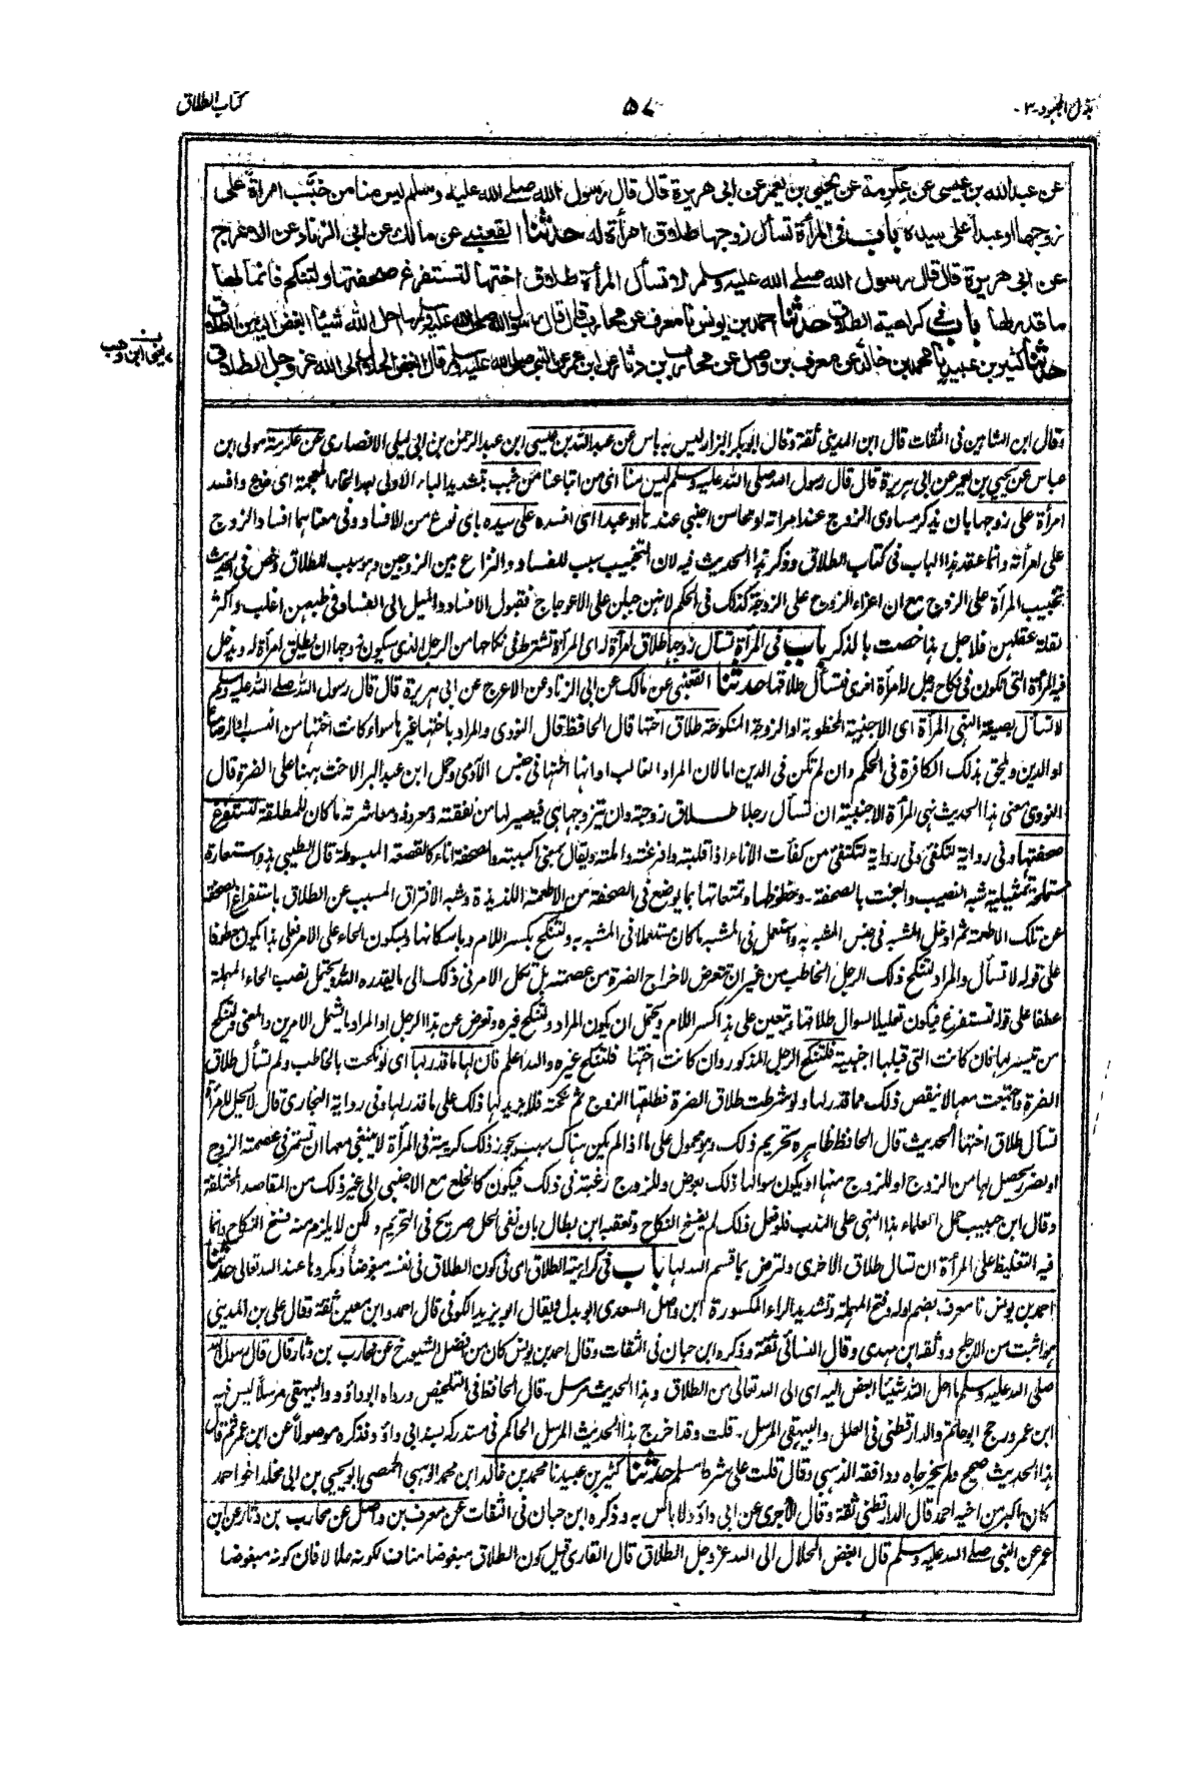 بذل المجهود-٣- ٥٧ كتاب الطلاق
عن عبد الله بن عيسى عن عكرمة عن يحيى بن يعمر عن ابى هريرة قال قال رسول الله صلى الله عليه وسلم ليس منا من خبّب امرأة على
زوجها او عبدا على سيده باب فى المرأة تسأل زوجها طلاق امرأة له حدثنا القعنبى عن مالك عن ابى الزناد عن الاعرج
عن ابى هريرة قال قال رسول الله صلى الله عليه وسلم لا تسأل المرأة طلاق اختها لتستفرغ صحفتها ولتنكح فانما لها
ما قدر لها باب فى كراهية الطلاق حدثنا احمد بن يونس نا معرف عن محارب قال قال رسول الله صلى الله عليه وسلم ما احل الله شيئا ابغض اليه من الطلاق
حدثنا كثير بن عبيد نا محمد بن خالد عن معرف بن واصل عن محارب بن دثار عن ابن عمر عن النبى صلى الله عليه وسلم قال ابغض الحلال الى الله عز وجل الطلاق
وقال ابن الشاهين فى الثقات قال ابن المدينى ثقة وقال ابو بكر البزار ليس به باس عن عبد الله بن عيسى ابن عبد الرحمن بن ابى ليلى الانصارى عن عكرمة مولى ابن
عباس عن يحيى بن يعمر عن ابى هريرة قال قال رسول الله صلى الله عليه وسلم ليس منا اى من اتباعنا من خبب بتشديد الباء الاولى بعد الخاء المعجمة اى خدع وافسد
امرأة على زوجها بان يذكر مساوى الزوج عند امراته او محاسن اجنبى عندها او عبدا اى افسده على سيده باى نوع من الافساد وفى معناهما افساد الزوج
على امرأته وانما عقد هذا الباب فى كتاب الطلاق وذكر هذا الحديث فيه لان التخبيب سبب للفساد والنزاع بين الزوجين وهو سبب للطلاق وخص فى الحديث
تخبيب المرأة على الزوج مع ان اغراء الزوج على الزوجة كذلك فى الحكم لانهن جبلن على الاعوجاج فقبول الافساد والميل الى الفساد فى طبعهن اغلب واكثر
لقلة عقلهن فلاجل هذا خصت بالذكر باب فى المرأة تسأل زوجها طلاق امرأة له اى المرأة تشترط فى نكاحها من الرجل الذى سيكون زوجها ان يطلق امرأة له ويدخل
فيه المرأة التى تكون فى نكاح رجل له امرأة اخرى فتسأل طلاقها حدثنا القعنبى عن مالك عن ابى الزناد عن الاعرج عن ابى هريرة قال قال رسول الله صلى الله عليه وسلم
لا تسأل بصيغة النهى المرأة اى الاجنبية المخطوبة او الزوجة المنكوحة طلاق اختها قال الحافظ قال النووى والمراد باختها غيرها سواء كانت اختها من النسب او الرضاع
او الدين ويلحق بذلك الكافرة فى الحكم وان لم تكن فى الدين اما لان المراد الغالب او انها اختها فى جنس الآدمى وحمل ابن عبد البر الاخت ههنا على الضرة قال
النووى معنى هذا الحديث نهى المرأة الاجنبية ان تسأل رجلا طلاق زوجته وان يتزوجها هى فيصير لها من نفقته ومعروفه ومعاشرته ما كان للمطلقة لتستفرغ
صحفتها وفى رواية لتكفئ وفى رواية لتكتفئ من كفأت الاناء اذا قلبته وافرغته واملته ويقال بمعنى اكببته والصحفة اناء كالقصعة المبسوطة قال الطيبى هذه استعارة
مستملحة تمثيلية شبه النصيب والبخت بالصحفة وحظوظها وتمتعاتها بما يوضع فى الصحفة من الاطعمة اللذيذة وشبه الافتراق المسبب عن الطلاق باستفراغ الصحفة
عن تلك الاطعمة ثم ادخل المشبه فى جنس المشبه به واستعمل فى المشبه ما كان مستعملا فى المشبه به ولتنكح بكسر اللام وباسكانها وبسكون الحاء على الامر فعلى هذا يكون معطوفا
على قوله لا تسأل والمراد لتنكح ذلك الرجل المخاطب من غير ان تتعرض لاخراج الضرة من عصمته بل تكل الامر فى ذلك الى ما يقدره الله ويحتمل نصب الحاء المهملة
عطفا على قوله لتستفرغ فيكون تعليلا لسوال طلاقها ويتعين على هذا كسر اللام ويحتمل ان يكون المراد ولتنكح غيره وتعرض عن هذا الرجل او المراد ما يشمل الامرين والمعنى ولتنكح
من تيسر لها فان كانت التى قبلها اجنبية فلتنكح الرجل المذكور وان كانت اختها فلتنكح غيره والله اعلم فان لها ما قدر لها اى لو نكحت بالخاطب ولم تسأل طلاق
الضرة واجتمعت معها لا ينقص ذلك مما قدر لها ولو شرطت طلاق الضرة فطلقها الزوج ثم نكحته فلا يزيد لها ذلك على ما قدر لها وفى رواية البخارى قال لا يحل للمرأة
تسأل طلاق اختها الحديث قال الحافظ ظاهره تحريم ذلك وهو محمول على ما اذا لم يكن هناك سبب يجوز ذلك كريبة فى المرأة لا ينبغى معها ان تستمر فى عصمة الزوج
او لضرر يحصل لها من الزوج او للزوج منها او يكون سوالها ذلك بعوض وللزوج رغبة فى ذلك فيكون كالخلع مع الاجنبى الى غير ذلك من المقاصد المختلفة
وقال ابن حبيب حمل العلماء هذا النهى على الندب فلو فعل ذلك لم يفسخ النكاح وتعقبه ابن بطال بان نفى الحل صريح فى التحريم ولكن لا يلزم منه فسخ النكاح وانما
فيه التغليظ على المرأة ان تسال طلاق الاخرى ولترض بما قسم الله لها باب فى كراهية الطلاق اى فى كون الطلاق فى نفسه مبغوضا ومكروها عند الله تعالى حدثنا
احمد بن يونس نا معرف بضم اوله وفتح المهملة وتشديد الراء المكسورة ابن واصل السعدى ابو بدل ويقال ابو يزيد الكوفى قال احمد وابن معين ثقة وقال على بن المدينى
هو اثبت من الاجلح ووثقه ابن مهدى وقال النسائى ثقة وذكره ابن حبان فى الثقات وقال احمد بن يونس كان من افضل الشيوخ عن محارب بن دثار قال قال رسول الله
صلى الله عليه وسلم ما احل الله شيئا ابغض اليه اى الى الله تعالى من الطلاق وهذا الحديث مرسل- قال الحافظ فى التلخيص ورواه ابو داؤد والبيهقى مرسلا ليس فيه
ابن عمر ورجح ابو حاتم والدارقطنى فى العلل والبيهقى المرسل- قلت وقد اخرج هذا الحديث المرسل الحاكم فى مستدركه بسند ابى داؤد فذكره موصولا عن ابن عمر ثم قال
هذا الحديث صحيح ولم يخرجاه ووافقه الذهبى وقال قلت على شرط مسلم حدثنا كثير بن عبيد نا محمد بن خالد ابن محمد الوهبى الحمصى ابو يحيى بن ابى مخلد اخو احمد
كان اكبر من اخيه احمد قال الدارقطنى ثقة وقال الآجرى عن ابى داؤد لا باس به وذكره ابن حبان فى الثقات عن معرف بن واصل عن محارب بن دثار عن ابن
عمر عن النبى صلى الله عليه وسلم قال ابغض الحلال الى الله عز وجل الطلاق قال القارى قيل كون الطلاق مبغوضا مناف لكونه حلالا فان كونه مبغوضا